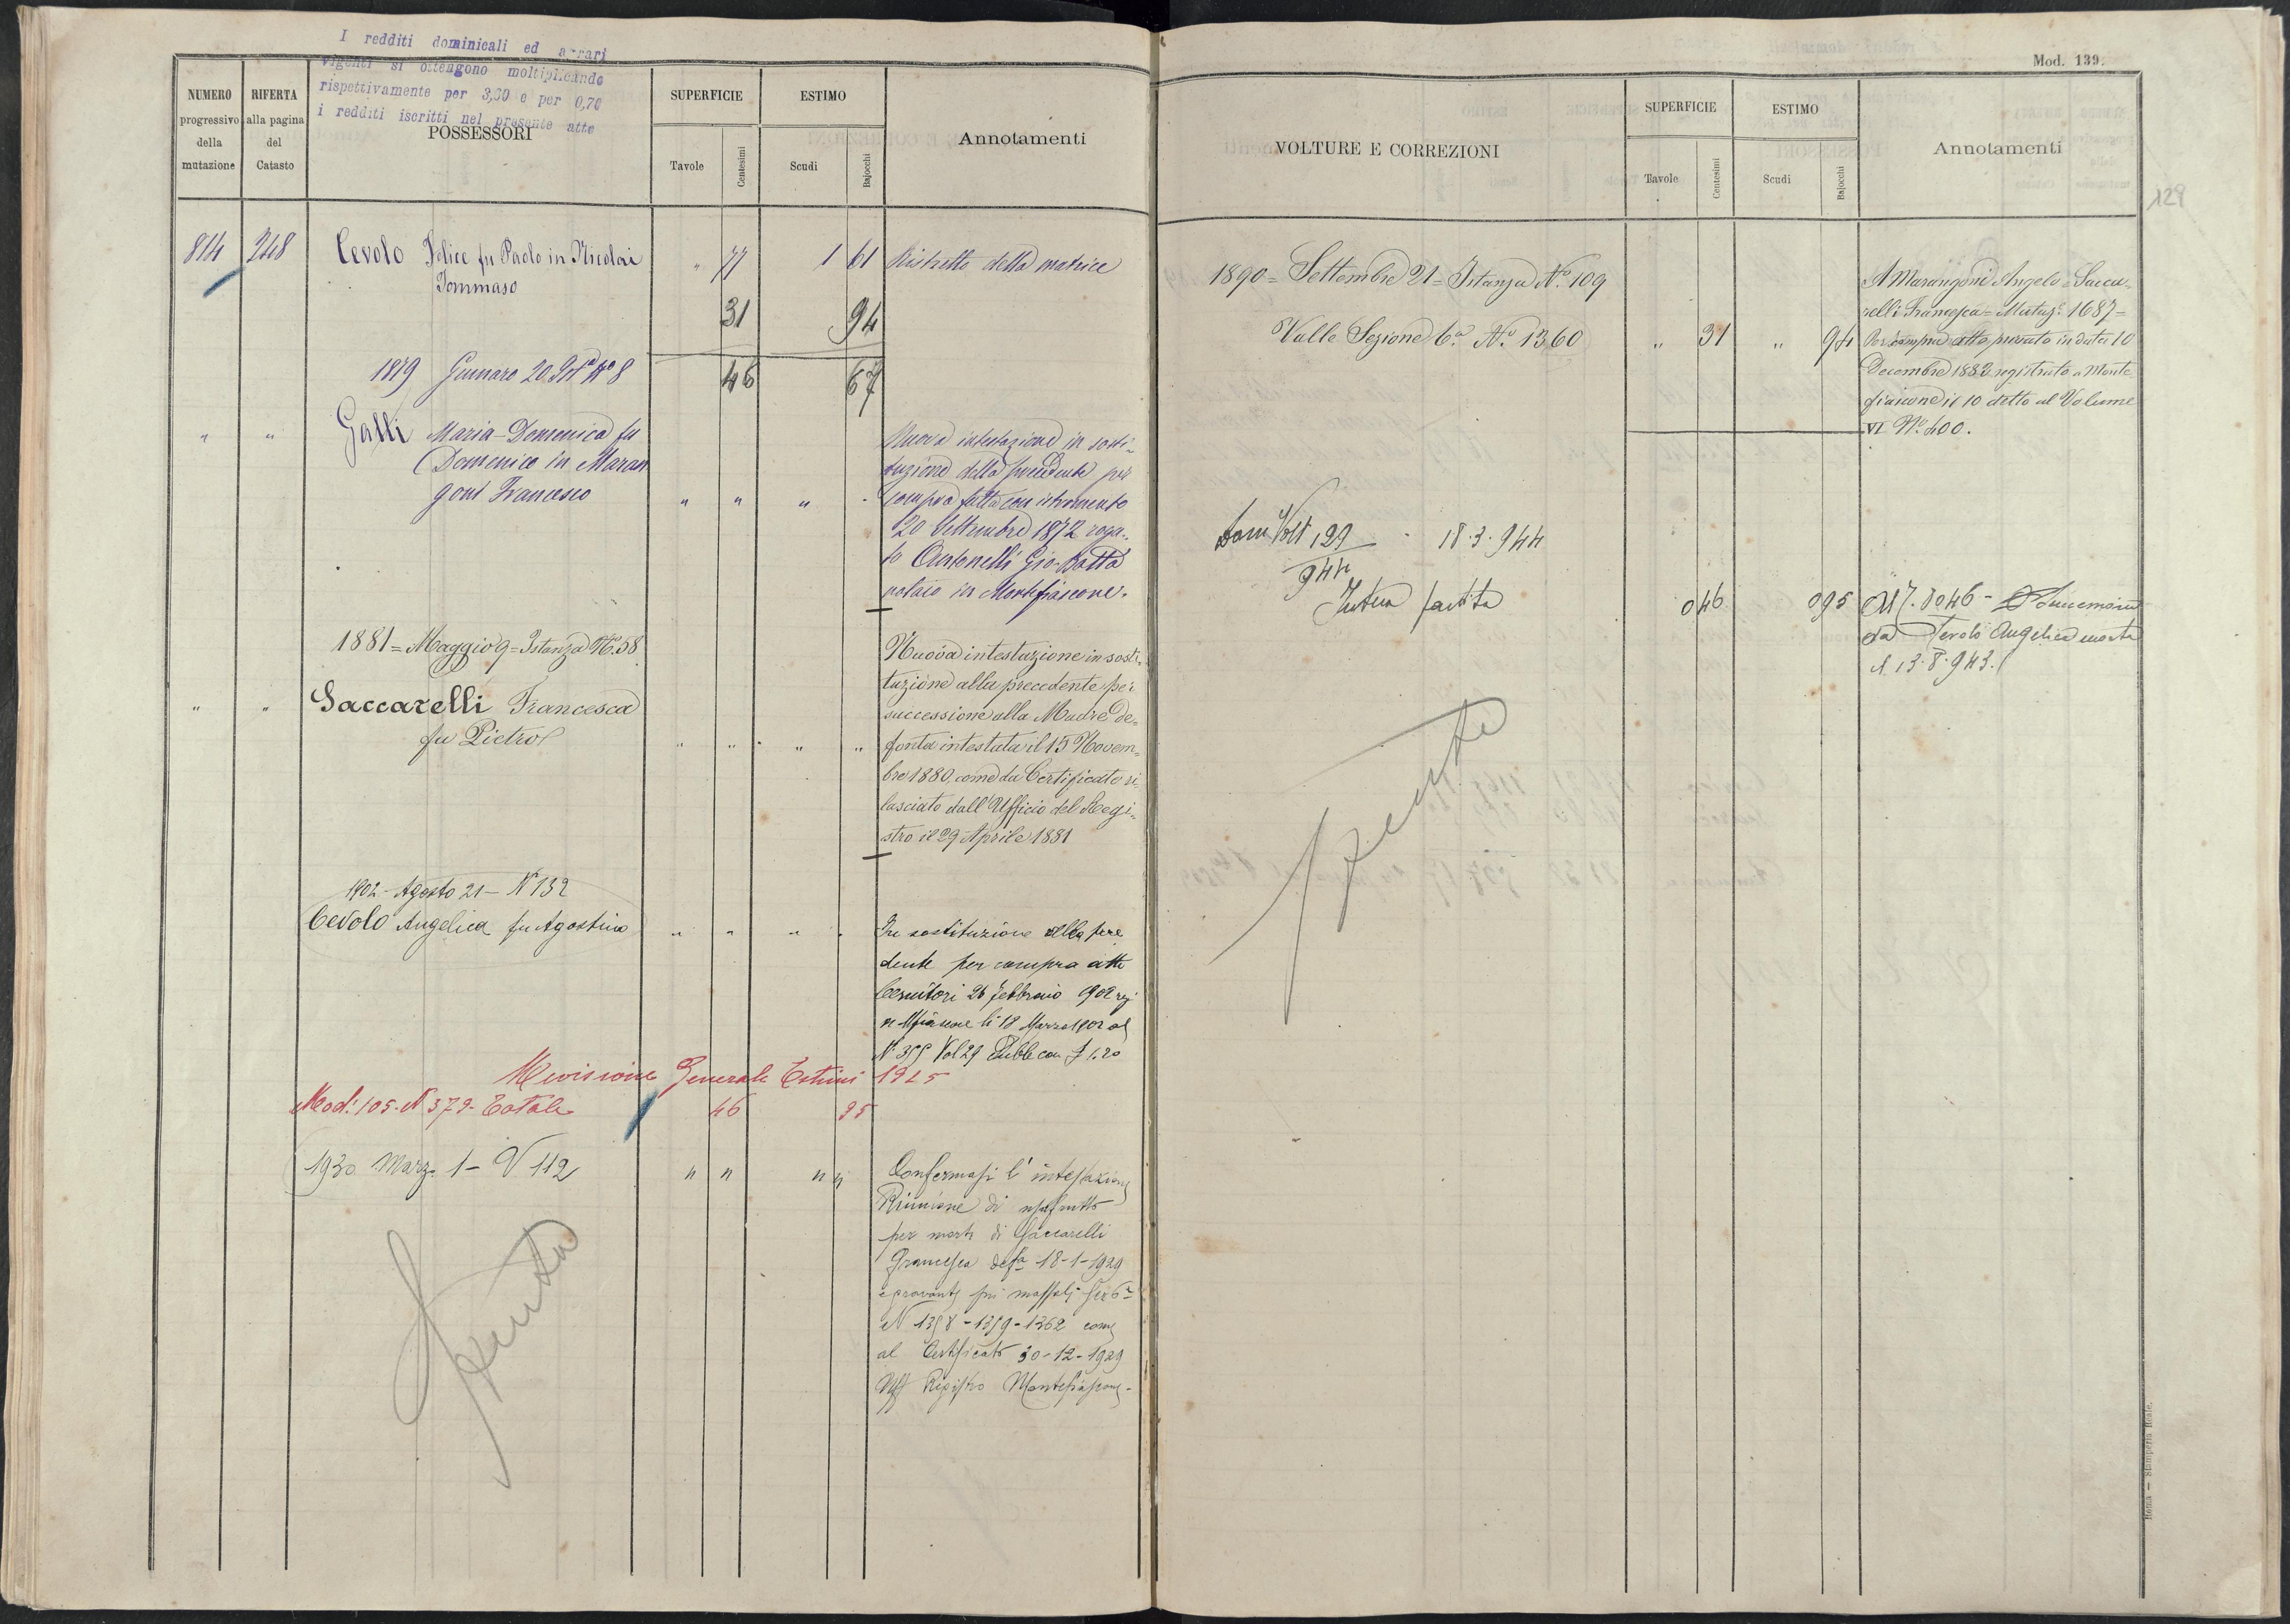 I redditi dominicali ed agrari
vigenti si ottengono moltiplicando
rispettivamente per 3,30 e per 0,70
i redditi iscritti nel presente atto
NUMERO
progressivo
della
mutazione
RIFERTA
alla pagina
del
Catasto
POSSESSORI
SUPERFICIE
Tavole
Centesimi
ESTIMO
Scudi
Bajocchi
Annotamenti
814 248 Cevolo Felice fu Paolo in Nicolai " 77 1 61 Ristretto della matrice
Tommaso
31 94
1879 Gennaro 20 N° 8 46 67
" " Galli Maria Domenica fu
Domenico in Maran
goni Francesco " " " "
Nuova intestazione in sosti-
tuzione della precedente per
compra fatta con istromento
20 Settembre 1872 roga-
to Antonelli Gio. Batta
notaio in Montefiascone.
1881 = Maggio 9 = Istanza N.° 58
" " Saccarelli Francesca
fu Pietro " " " "
Nuova intestazione in sosti=
tuzione alla precedente per
successione alla Madre de=
fonta intestata il 15 Novem=
bre 1880, come da Certificato ri
lasciato dall'Ufficio del Regi=
stro il 29 Aprile 1881
1902 - Agosto 21 - N° 132
Cevolo Angelica fu Agostino " " " "
In sostituzione alla prece
dente per compra atti
26 Febbraio 902 reg
li 18 Marzo 1902 al
N° 355 Vol 29
Revisione Generale Estimi 1925
Mod. 105. N 379. Totale 46 95
1930 Marzo 1 - V 112 " " " "
Confermasi l'intestazione
Riunione di usufrutto
per morte di Saccarelli
Francesca def.a 18-1-1929
e gravante più mappali Sez 6a
N 1358 - 1359 - 1362 come
al Certificato 30-12-1929
Uff Registro Montefiascone -
Spenta
Mod. 139.
VOLTURE E CORREZIONI
SUPERFICIE
Tavole
Centesimi
ESTIMO
Scudi
Bajocchi
Annotamenti
129
1890 = Settembre 21 = Istanza N.° 109
Valle Sezione 6.a N.° 1360 " 31 " 94
A Marangoni Angelo = Sacca=
relli Francesca = Mutaz.e 1687 =
Per compra atto privato in data 10
Decembre 1882 registrato a Monte
fiascone il 10 detto al Volume
VI N.° 400.
Dom Volt 129 18.3.944
944
Intera partita 046 095
M/. 8046 -
da Cevolo Angelica morta
il 13.8.943.
Spenta
Roma — Stamperia Reale.